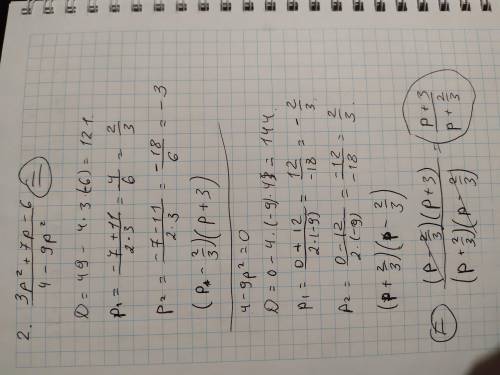 2. (3p² + 7p - 6)/(4 - 9p²) =
D = 49 - 4 · 3 (-6) = 121
p₁ = (-7 + 11)/(2 · 3) = 4/6 = 2/3
p₂ = (-7 - 11)/(2 · 3) = -18/6 = -3
(p - 2/3)(p + 3)
4 - 9p² = 0
D = 0 - 4 · (-9) · 4 = 144.
p₁ = (0 + 12)/(2 · (-9)) = 12/-18 = -2/3.
p₂ = (0 - 12)/(2 · (-9)) = -12/-18 = 2/3.
(p + 2/3)(p - 2/3)
= ((p - 2/3)(p + 3))/((p + 2/3)(p - 2/3)) = (p + 3)/(p + 2/3)